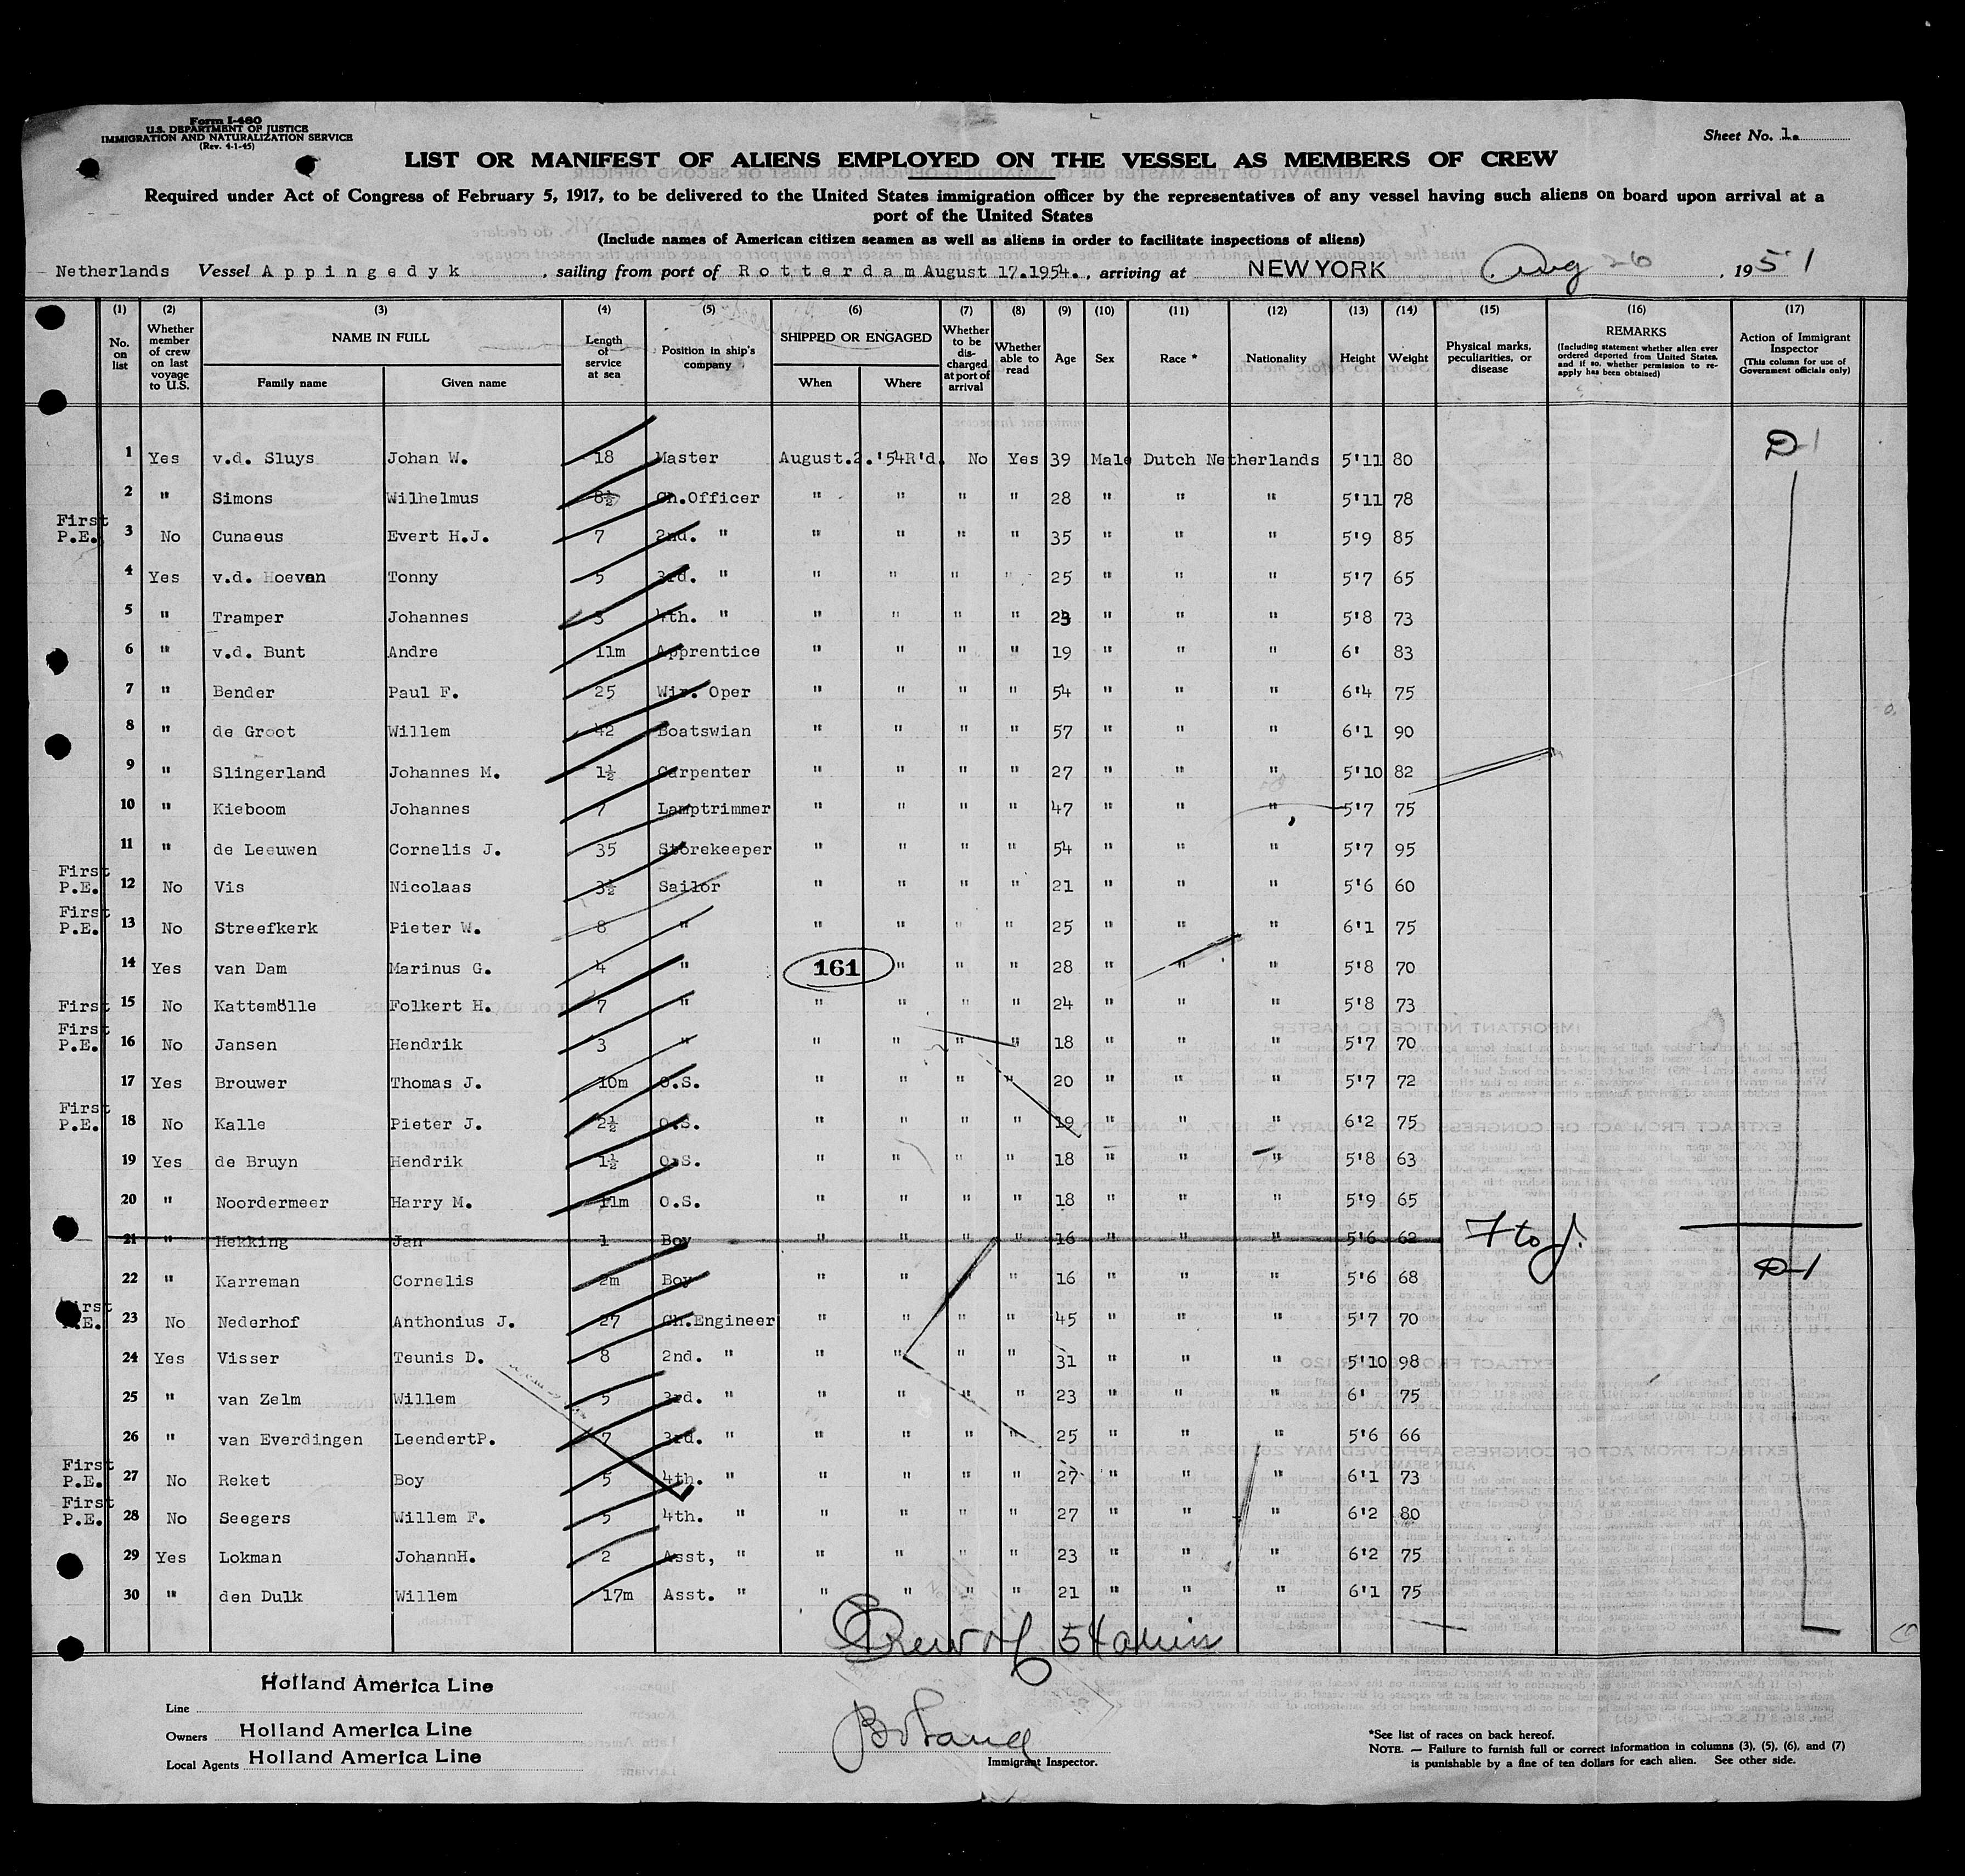 Form I-480
U.S. DEPARTMENT OF JUSTICE
IMMIGRATION AND NATURALIZATION SERVICE
(Rev. 4-1-45)
Sheet No. 1.
LIST OR MANIFEST OF ALIENS EMPLOYED ON THE VESSEL AS MEMBERS OF CREW
Required under Act of Congress of February 5, 1917, to be delivered to the United States immigration officer by the representatives of any vessel having such aliens on board upon arrival at a
port of the United States
(Include names of American citizen seamen as well as aliens in order to facilitate inspections of aliens)
Netherlands Vessel Appingedyk, sailing from port of Rotterdam August 17.1954., arriving at NEW YORK Aug 26, 1951
(1) (2) (3) (4) (5) (6) (7) (8) (9) (10) (11) (12) (13) (14) (15) (16) (17)
No. on list Whether member of crew on last voyage to U.S. NAME IN FULL Family name Given name Length of service at sea Position in ship's company SHIPPED OR ENGAGED When Where Whether to be discharged at port of arrival Whether able to read Age Sex Race * Nationality Height Weight Physical marks, peculiarities, or disease REMARKS (Including statement whether alien ever ordered deported from United States, and if so, whether permission to reapply has been obtained) Action of Immigrant Inspector (This column for use of Government officials only)
D-1
1 Yes v.d. Sluys Johan W. 18 Master August.2.'54 R'd. No Yes 39 Male Dutch Netherlands 5'11 80
2 " Simons Wilhelmus 8½ Ch.Officer " " " " 28 " " " 5'11 78
First P.E. 3 No Cunaeus Evert H.J. 7 2nd. " " " " " 35 " " " 5'9 85
4 Yes v.d. Hoeven Tonny 5 3rd. " " " " " 25 " " " 5'7 65
5 " Tramper Johannes 3 4th. " " " " " 23 " " " 5'8 73
6 " v.d. Bunt Andre 11m Apprentice " " " " 19 " " " 6' 83
7 " Bender Paul F. 25 Wir. Oper " " " " 54 " " " 6'4 75
8 " de Groot Willem 42 Boatswian " " " " 57 " " " 6'1 90
9 " Slingerland Johannes M. 1½ Carpenter " " " " 27 " " " 5'10 82
10 " Kieboom Johannes 7 Lamptrimmer " " " " 47 " " " 5'7 75
11 " de Leeuwen Cornelis J. 35 Storekeeper " " " " 54 " " " 5'7 95
First P.E. 12 No Vis Nicolaas 3½ Sailor " " " " 21 " " " 5'6 60
First P.E. 13 No Streefkerk Pieter W. 8 " " " " " 25 " " " 6'1 75
14 Yes van Dam Marinus G. 4 " 161 " " " 28 " " " 5'8 70
First 15 No Kattemölle Folkert H. 7 " " " " " 24 " " " 5'8 73
First P.E. 16 No Jansen Hendrik 3 " " " " " 18 " " " 5'7 70
17 Yes Brouwer Thomas J. 10m O.S. " " " " 20 " " " 5'7 72
First P.E. 18 No Kalle Pieter J. 2½ O.S. " " " " 19 " " " 6'2 75
19 Yes de Bruyn Hendrik 1½ O.S. " " " " 18 " " " 5'8 63
20 " Noordermeer Harry M. 11m O.S. " " " " 18 " " " 5'9 65
21 " Hekking Jan 1 Boy " " " " 16 " " " 5'6 62
22 " Karreman Cornelis 2m Boy " " " " 16 " " " 5'6 68 D-1
First P.E. 23 No Nederhof Anthonius J. 27 Ch.Engineer " " " " 45 " " " 5'7 70
24 Yes Visser Teunis D. 8 2nd. " " " " " 31 " " " 5'10 98
25 " van Zelm Willem 5 3rd. " " " " " 23 " " " 6' 75
26 " van Everdingen LeendertP. 7 3rd. " " " " " 25 " " " 5'6 66
First P.E. 27 No Reket Boy 5 4th. " " " " " 27 " " " 6'1 73
First P.E. 28 No Seegers Willem F. 5 4th. " " " " " 27 " " " 6'2 80
29 Yes Lokman JohannH. 2 Asst, " " " " " 23 " " " 6'2 75
30 " den Dulk Willem 17m Asst. " " " " " 21 " " " 6'1 75
Crew of 54 alien
Line Holland America Line
Owners Holland America Line
Local Agents Holland America Line
Immigrant Inspector.
*See list of races on back hereof.
NOTE. — Failure to furnish full or correct information in columns (3), (5), (6), and (7)
is punishable by a fine of ten dollars for each alien. See other side.